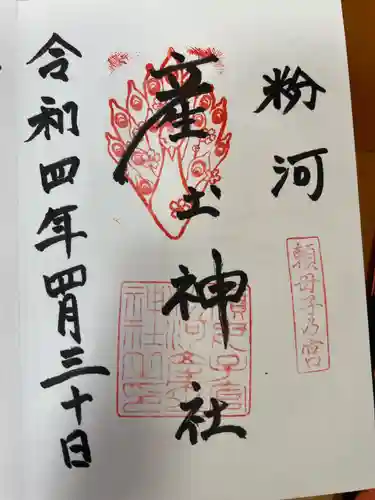 粉河
産土神社
令和四年四月三十日
頼母子乃宮